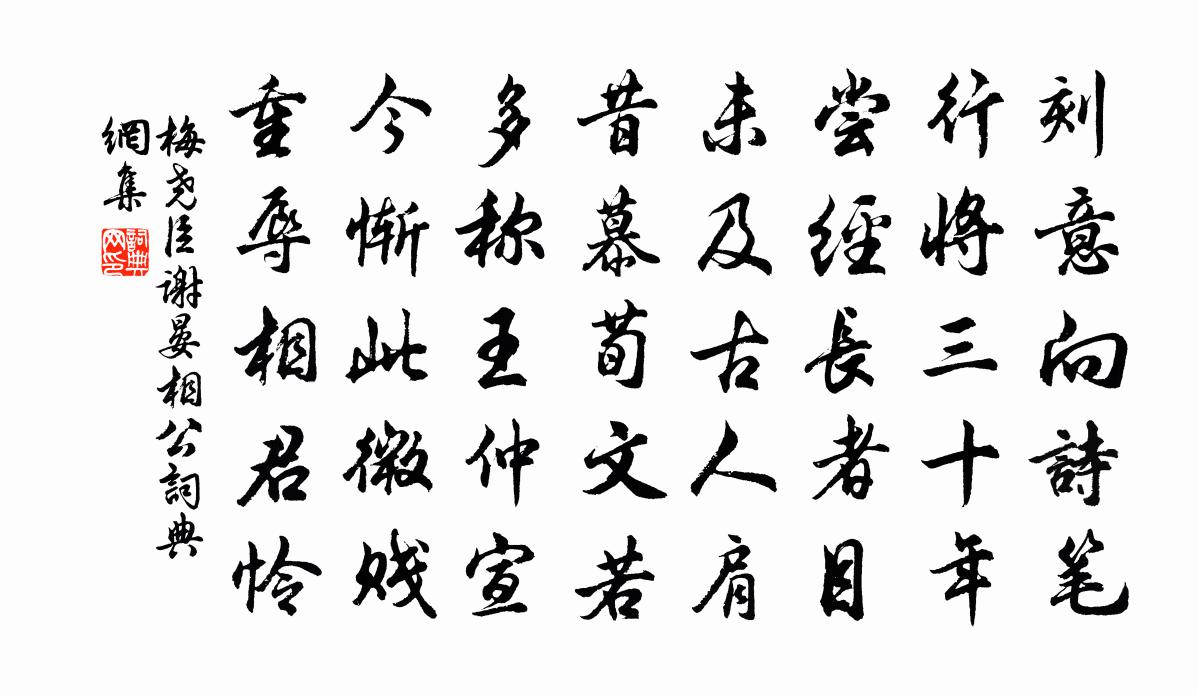 刻意向詩笔
行將三十年
尝經長者目
未及古人肩
昔慕荀文若
多称王仲宣
今惭此微贱
重辱相君怜
梅尧臣谢晏相公詞典
網集
詞典
网印